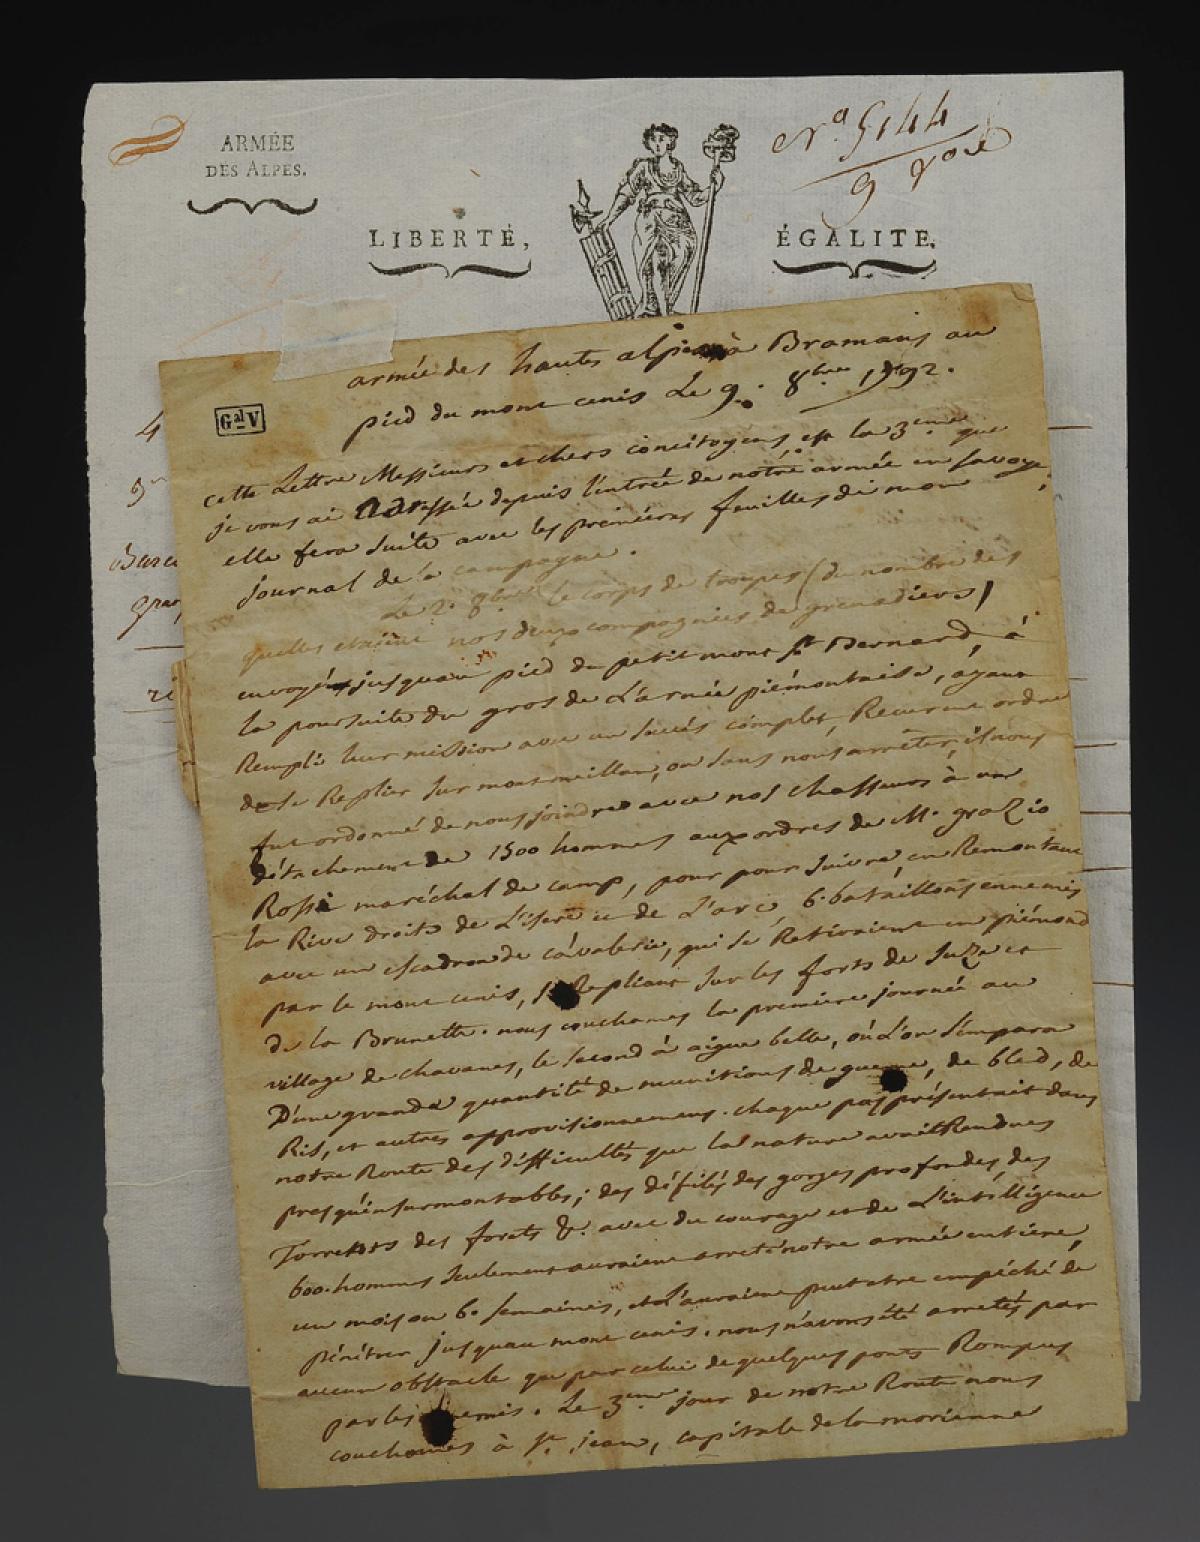 ARMÉE
DES ALPES.
Nº 5144
9
LIBERTÉ,
ÉGALITÉ.
armée des hautes alpes à Bramans au
pied du mont cenis Le 9. 8bre 1792.
Gal V
cette Lettre Messieurs et chers concitoyens, est la 3eme que
je vous ai adressée depuis l'entrée de notre armée en savoye,
elle fera suite avec les premieres feuilles de mon
journal de la campagne.
Le 2. 8bre le corps de troupes (du nombre des
quelles etaient nos deux compagnies de grenadiers)
envoyé jusquau pied du petit mont St Bernard, à
la poursuite du gros de L'armée piémontaise, ayant
Rempli leur mission avec un succés complet, Recurent ordre
de se Replier sur montmeillan, ou sans nous arrêter, il nous
fut ordonné de nous joindre avec nos chasseurs à un
détachement de 1500 hommes aux ordres de M. grazio
Rossi maréchal de camp, pour poursuivre, en Remontant
la Rive droite de L'isere et de L'arc 6. bataillons ennemis
avec un escadron de cavalerie, qui se Retiraient en piémond
par le mont cenis, se Repliant sur les forts de Suze et
de la Brunette. nous couchames la premiere journée au
village de chavanes, le second à aigue belle, où L'on s'empara
D'une grande quantité de munitions de guerre, de bled, de
Ris, et autres approvisionnemens. chaque pas présentait dans
notre Route des difficultés que la nature avait Rendues
presqu'insurmontables; des défilés des gorges profondes, des
Torrents des forets &. avec du courage et de L'intelligence
600. hommes seulement auraient arreté notre armée entiere,
un mois ou 6. semaines, et L'auraient peut etre empéché de
pénétrer jusquau mont cenis. nous n'avons été arretés par
aucun obstacle que par celui de quelques ponts Rompus
par les ennemis. Le 3eme jour de notre Route nous
couchames à St. jean, capitale de la morienne